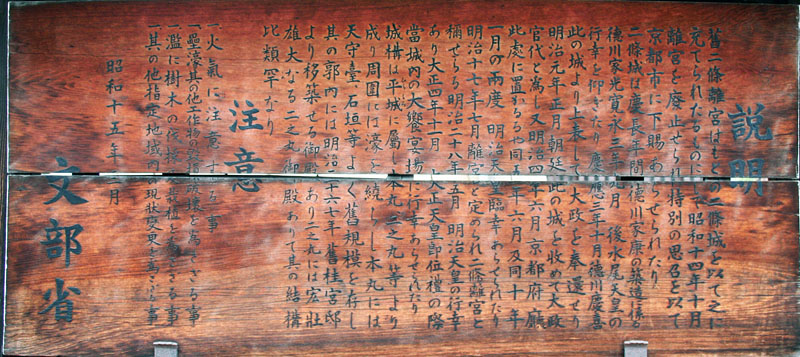 説明
舊二條離宮はもとの二條城を以て之に
充てられたるものにして昭和十四年十月
離宮を廢止せられ特別の思召を以て
京都市に下賜あらせられたり
二條城は慶長年間德川家康の築造に係る
德川家光寛永三年九月 後水尾天皇の
行幸を仰ぎたり 慶應三年十月德川慶喜
此の城より上表して大政を奉還せり
明治元年正月朝廷此の城を收めて太政
官代と為し又明治四年六月京都府廳
此處に置かる 同五年六月及同十年
一月の兩度 明治天皇臨幸あらせられたり
明治十七年七月離宮と定められ二條離宮と
稱せらる明治二十八年五月 明治天皇の行幸
あり大正四年十一月 大正天皇即位禮の際
當城内の大饗宴場に行幸あらせられたり
城構は平城に屬し本丸二之丸等より
成り周圍には濠を繞らし本丸には
天守臺 石垣等よく舊規模を存し
其の郭内には明治二十六七年舊桂宮邸
より移築せる御殿あり二之丸には宏壯
雄大なる二之丸御殿ありて其の結構
比類罕なり
注意
一火氣に注意する事
一壘濠其の他工作物の 損壞を為さざる事
一濫に樹木の伐採 植を為さざる事
一其の他指定地域内の現狀變更を為さざる事
昭和十五年 月
文部省